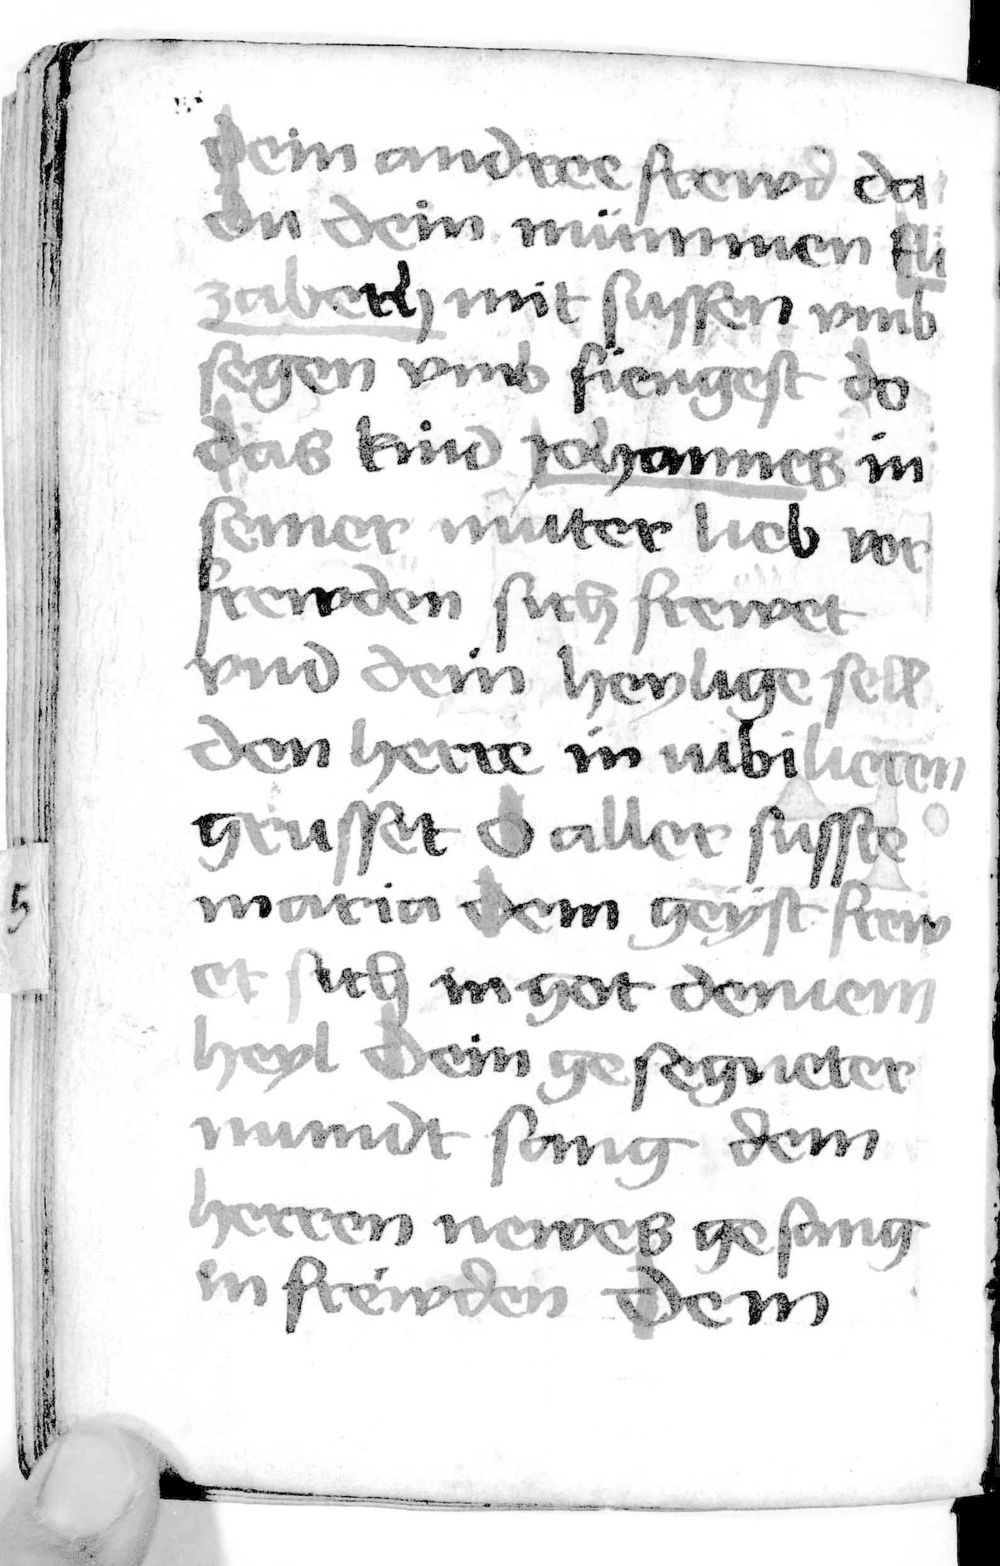 Dein andree frewd da
du dein mümmen Eli
zabeth mit sussen vmb
segen vmb fiengest do
das kind Johannes in
seiner muter lieb vor
frewden sich frewet
vnd dein heylige sell
den herre in iubilieren
geusset O aller susste
maria Dein geÿst frew
et sich in got deinem
heyl Dein gesegneter
mundt sang dem
herren newes gesang
in frewden Dein
5